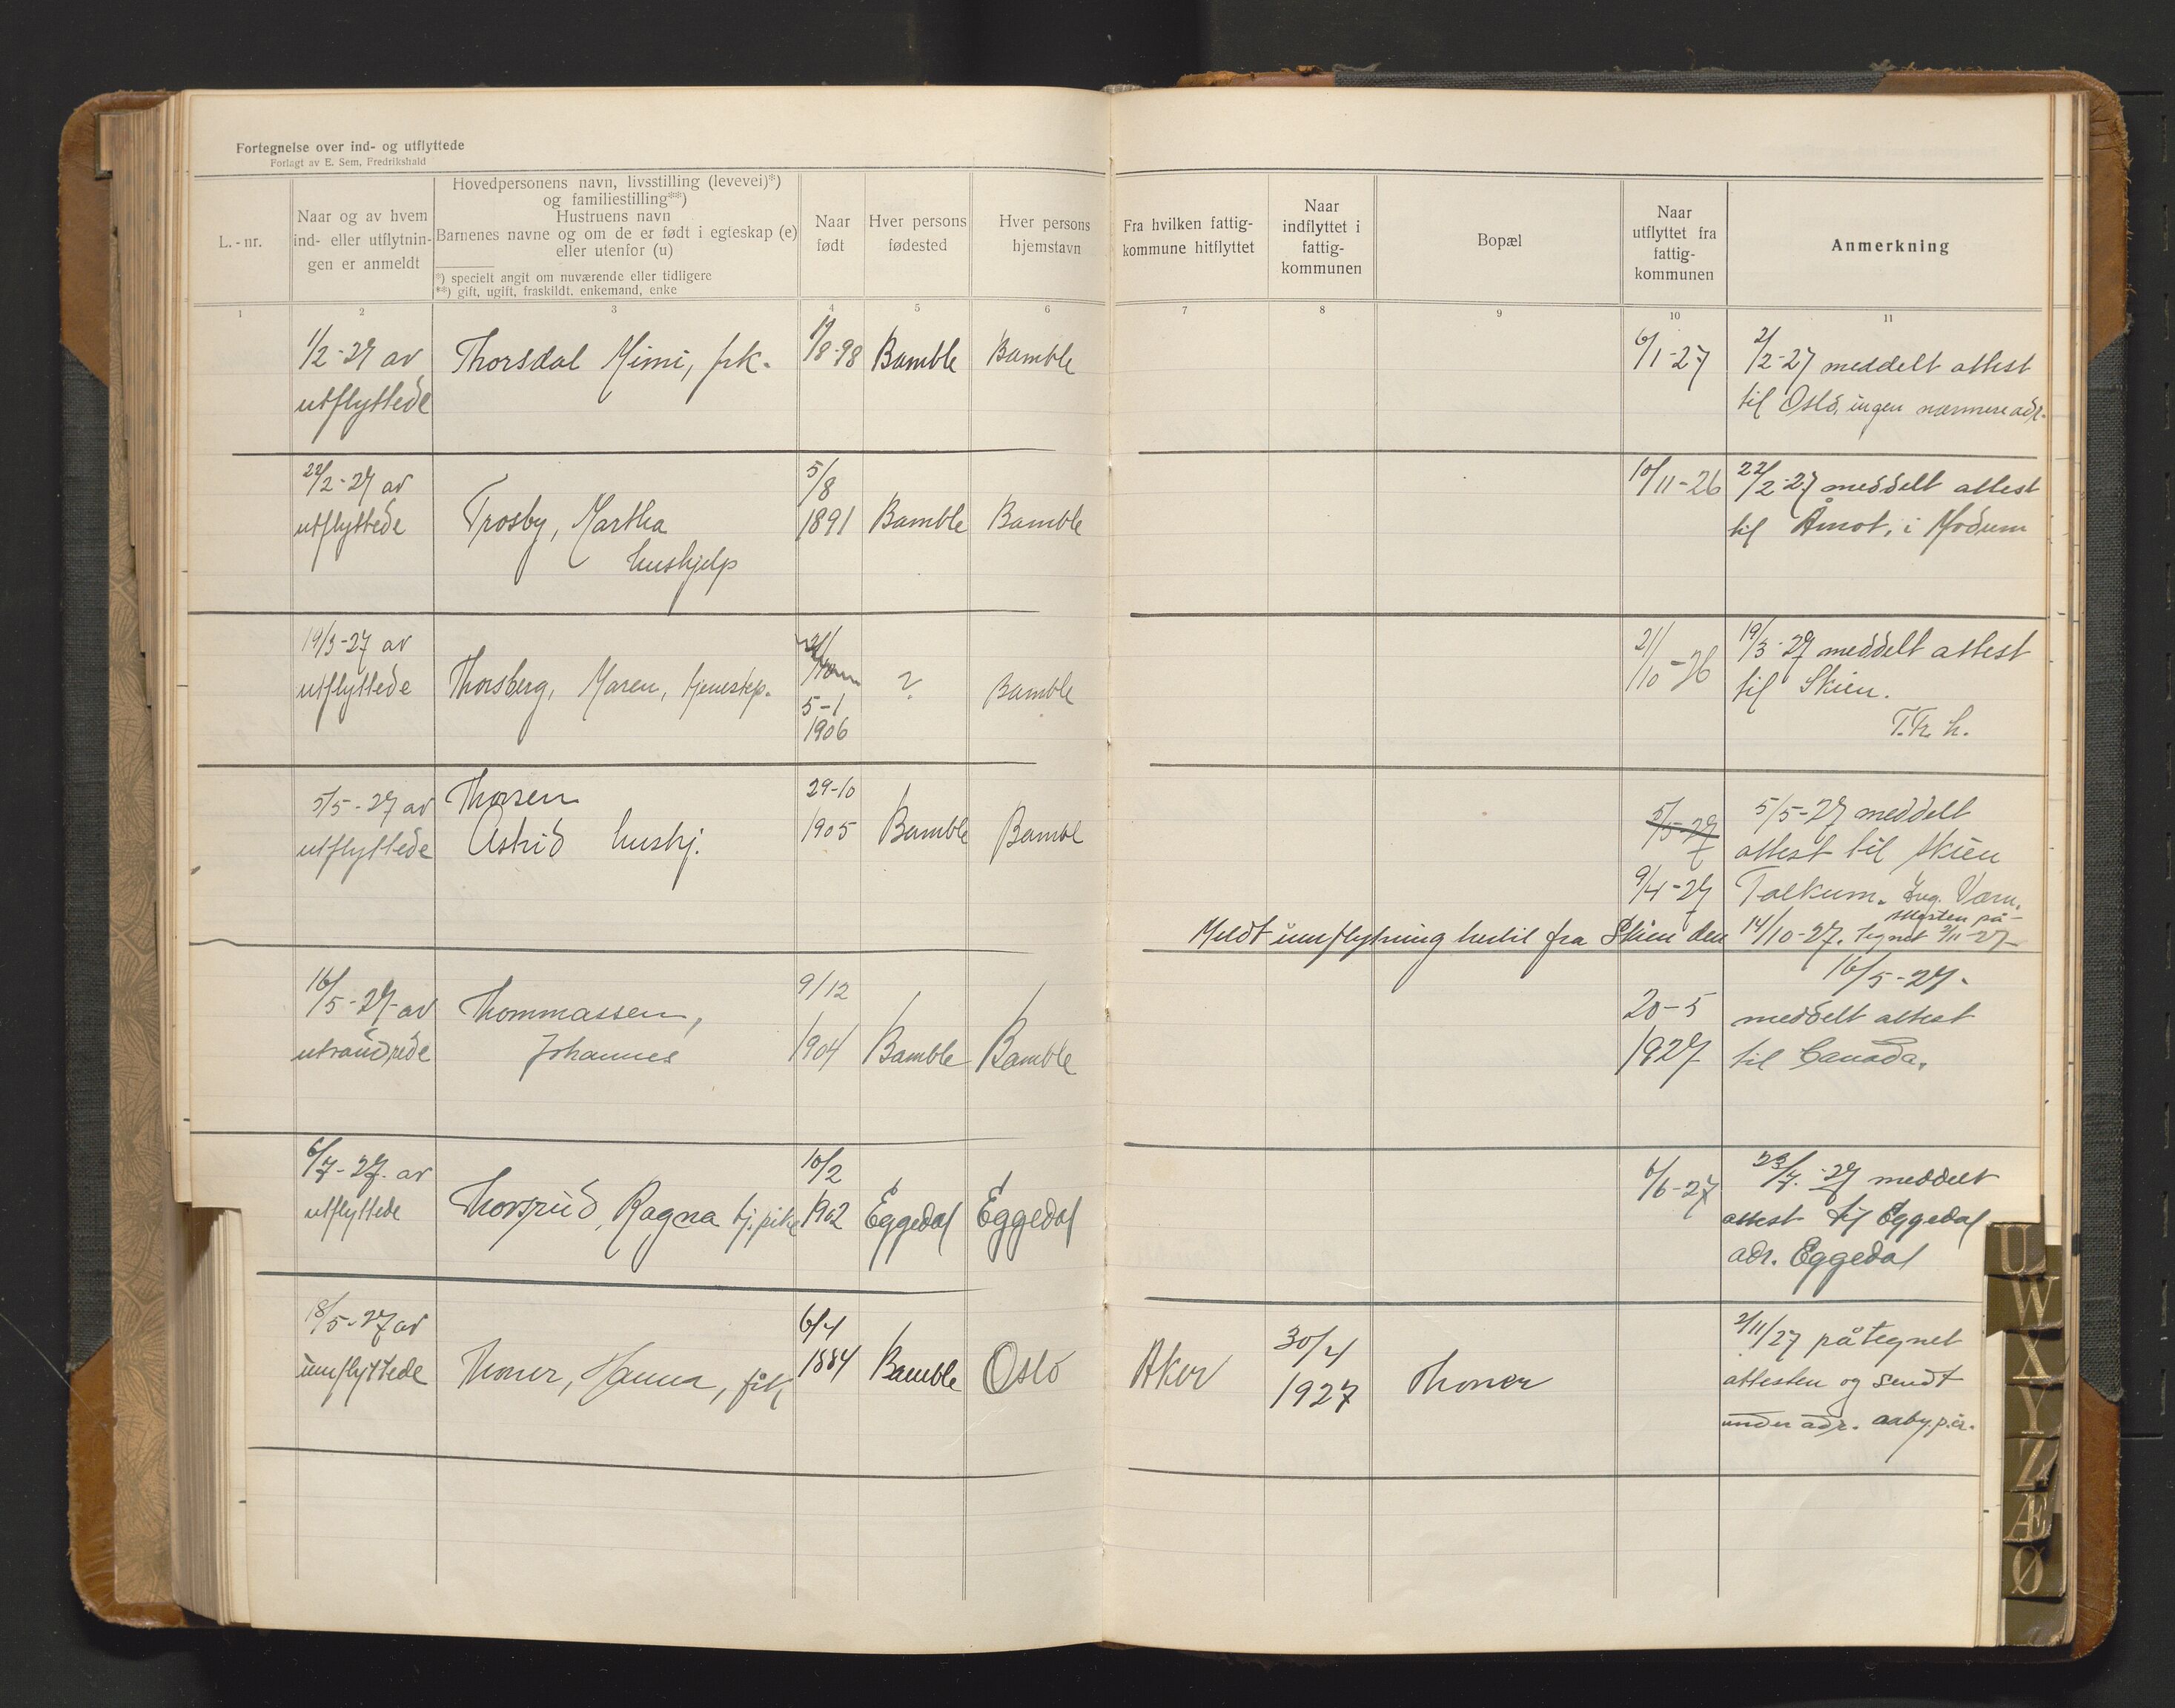 Fortegnelse over ind- og utflyttede
Forlagt av E. Sem, Fredrikshald
L.-nr.
Naar og av hvem
ind- eller utflytnin-
gen er anmeldt
Hovedpersonens navn, livsstilling (levevei)*)
og familiestilling**)
Hustruens navn
Barnenes navne og om de er født i egteskap (e)
eller utenfor (u)
*) specielt angit om nuværende eller tidligere
**) gift, ugift, fraskildt, enkemand, enke
Naar
født
Hver persons
fødested
Hver persons
hjemstavn
Fra hvilken fattig-
kommune hitflyttet
Naar
indflyttet i
fattig-
kommunen
Bopæl
Naar
utflyttet fra
fattig-
kommunen
Anmerkning
1 2 3 4 5 6 7 8 9 10 11
1/2-27 av
utflyttede
Thorsdal Mimi, frk.
/8-98
Bamble
Bamble
6/1-27
2/2-27 meddelt attest
til Oslo, ingen nærmere adr.
22/2-27 av
utflyttede
Trosby, Martha
hushjelp
5/8
1891
Bamble
Bamble
10/11-26
22/2-27 meddelt attest
til Åmot, i Modum
19/3-27 av
utflyttede
Thorsberg, Maren, tjenestep.
5-1
1906
?
Bamble
21/10-26
19/3-27 meddelt attest
til Skien.
T.Fr. h.
5/5-27 av
utflyttede
Thorsen
Astrid hushj.
29-10
1905
Bamble
Bambl
5/5-27
9/4-27
5/5-27 meddelt
attest til Skien
Talkum. Ing.Værn.
Meldt innflytning hertil fra Skien den 14/10-27. Attesten på-
tegnet 2/11-27
16/5-27 av
utvandrede
Thommassen,
Johannes
9/12
1904
Bamble
Bamble
20-5
1927
16/5-27.
meddelt attest
til Canada.
6/7-27. av
utflyttede
Thorsrud, Ragna tj.pike
10/2
1902
Eggedal
Eggedal
6/6-27
23/7.-27 meddelt
attest til Eggedal
adr. Eggedal
18/5-27 av
innflyttede
Thoner, Hanna, frk
6/4
1884
Bamble
Oslo
Aker
30/4
1927
Thoner
2/11/27 påtegnet
attesten og sendt
under adr. Aaby.p.å.
U
W
X
Y
Z
Æ
Ø